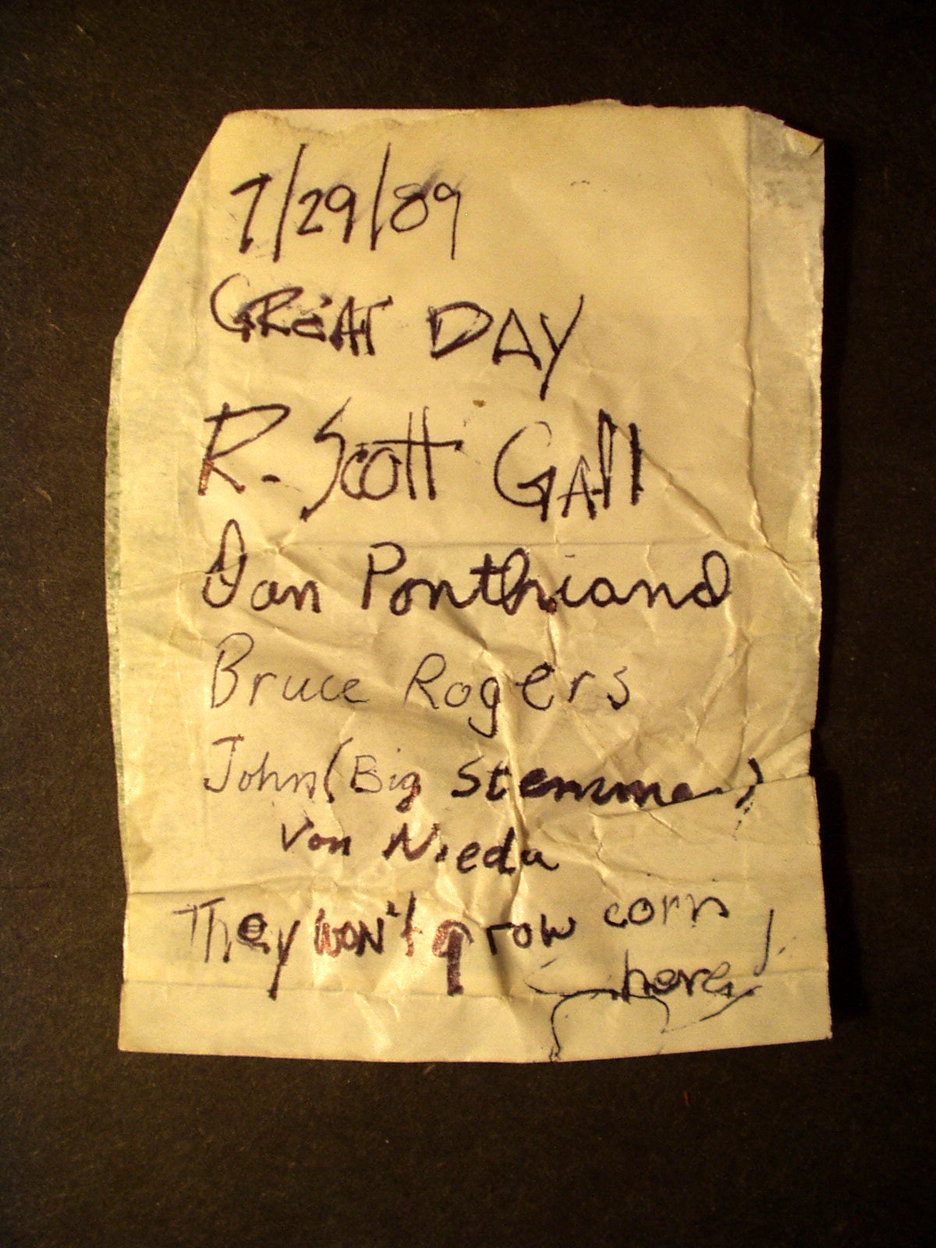 7/29/89
GREAT DAY
R. Scott Gall
Dan Ponthiand
Bruce Rogers
John (Big Stemmer)
Von Nieda
They won't grow corn
here!